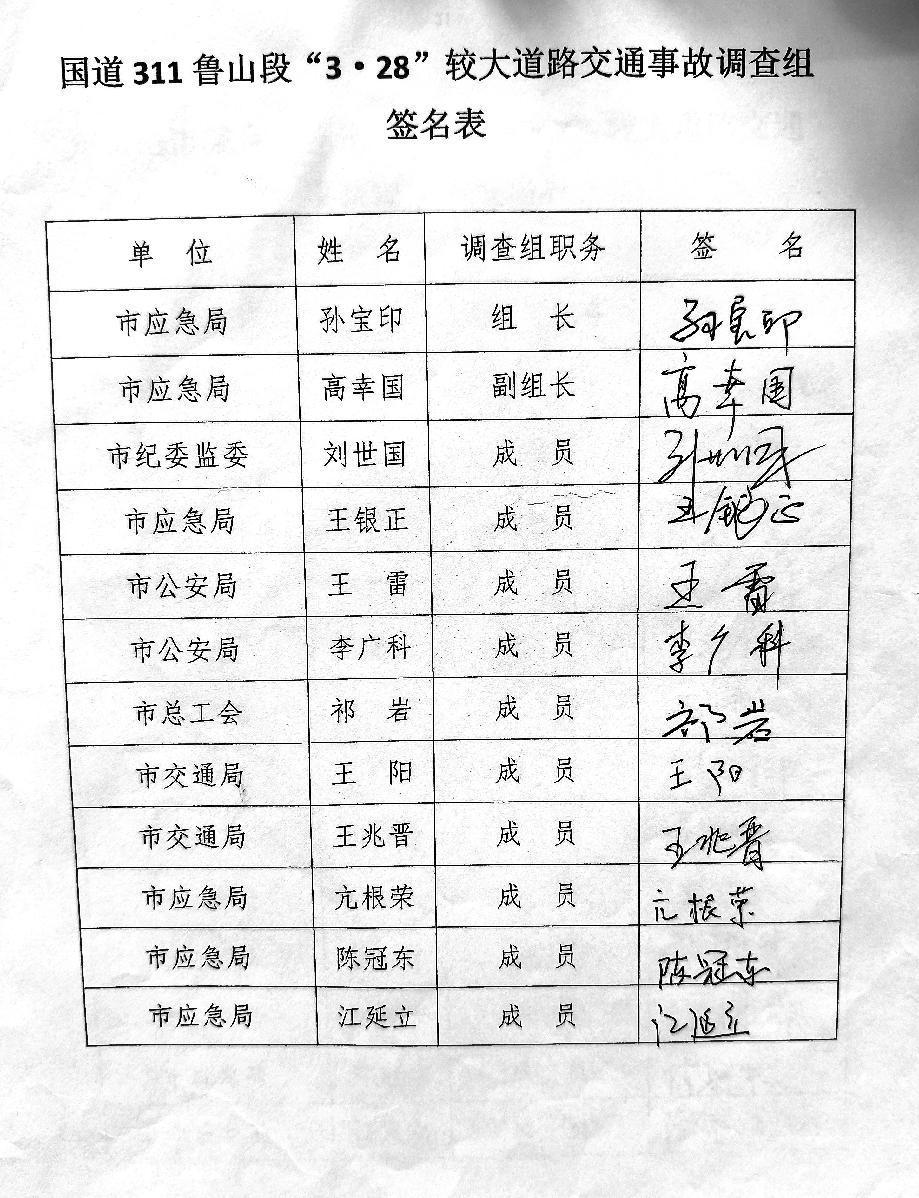 国道 311 鲁山段“3·28”较大道路交通事故调查组
签名表
单 位 姓 名 调查组职务 签 名
市应急局 孙宝印 组 长 孙宝印
市应急局 高幸国 副组长 高幸国
市纪委监委 刘世国 成 员 刘世国
市应急局 王银正 成 员 王银正
市公安局 王 雷 成 员 王雷
市公安局 李广科 成 员 李广科
市总工会 祁 岩 成 员 祁岩
市交通局 王 阳 成 员 王阳
市交通局 王兆晋 成 员 王兆晋
市应急局 亢根荣 成 员 亢根荣
市应急局 陈冠东 成 员 陈冠东
市应急局 江延立 成 员 江延立